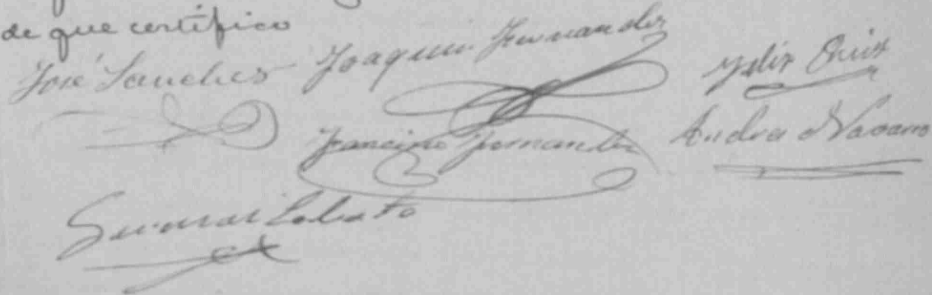 de que certifico
José Sanches Joaquin Fernandez Felix Ruiz
Francisco Fernandez Andres Navarro
Lobato